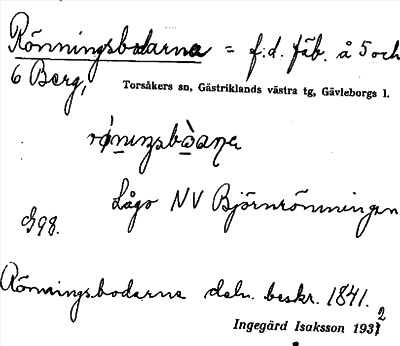 Rönningsbodarna = f.d. fäb. å 5 och
6 Berg,
Torsåkers sn, Gästriklands västra tg, Gävleborgs l.
Lågo NV Björnrönningen
Rönningsbodarna deln. beskr. 1841.
Ingegärd Isaksson 1932